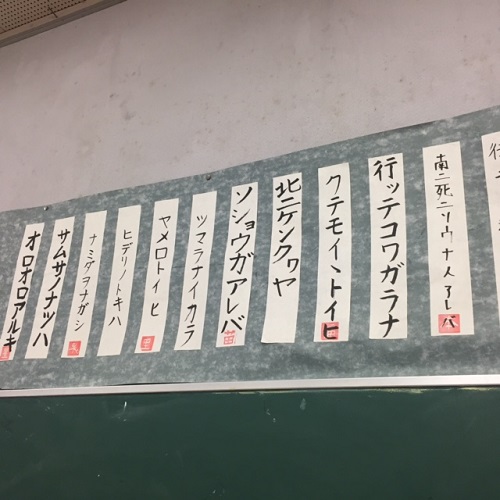 行
南ニ死ニソウナ人アレバ
行ッテコワガラナ
クテモイヽトイヒ
北ニケンクヮヤ
ソショウガアレバ
ツマラナイカラ
ヤメロトイヒ
ヒデリノトキハ
ナミダヲナガシ
サムサノナツハ
オロオロアルキ